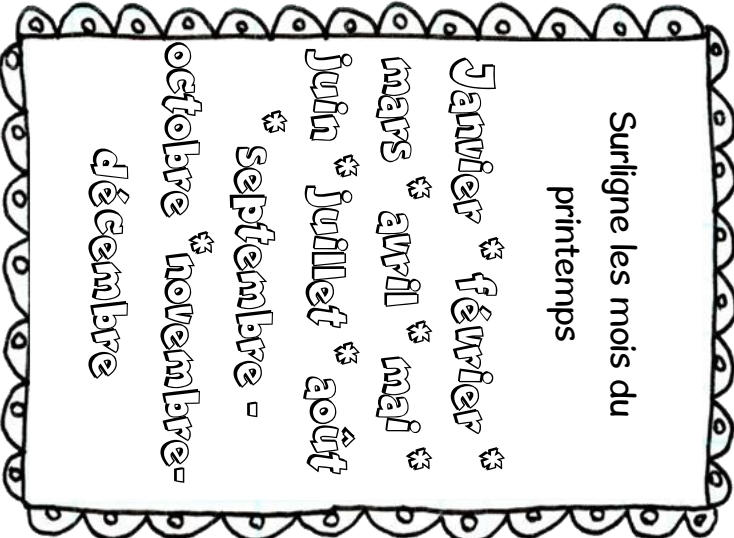 Surligne les mois du
printemps
Janvier * février *
mars * avril * mai *
juin * juillet * août
* septembre -
octobre * novembre-
décembre